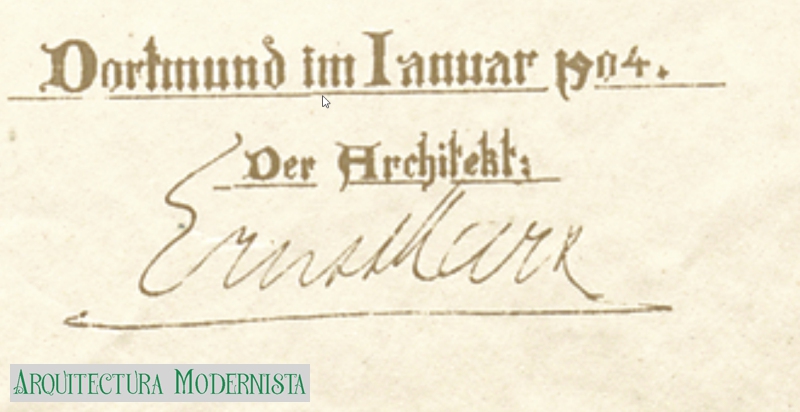 Dortmund im Ianuar 1904.
Der Architekt:
Ernst Marx
ARQUITECTURA MODERNISTA